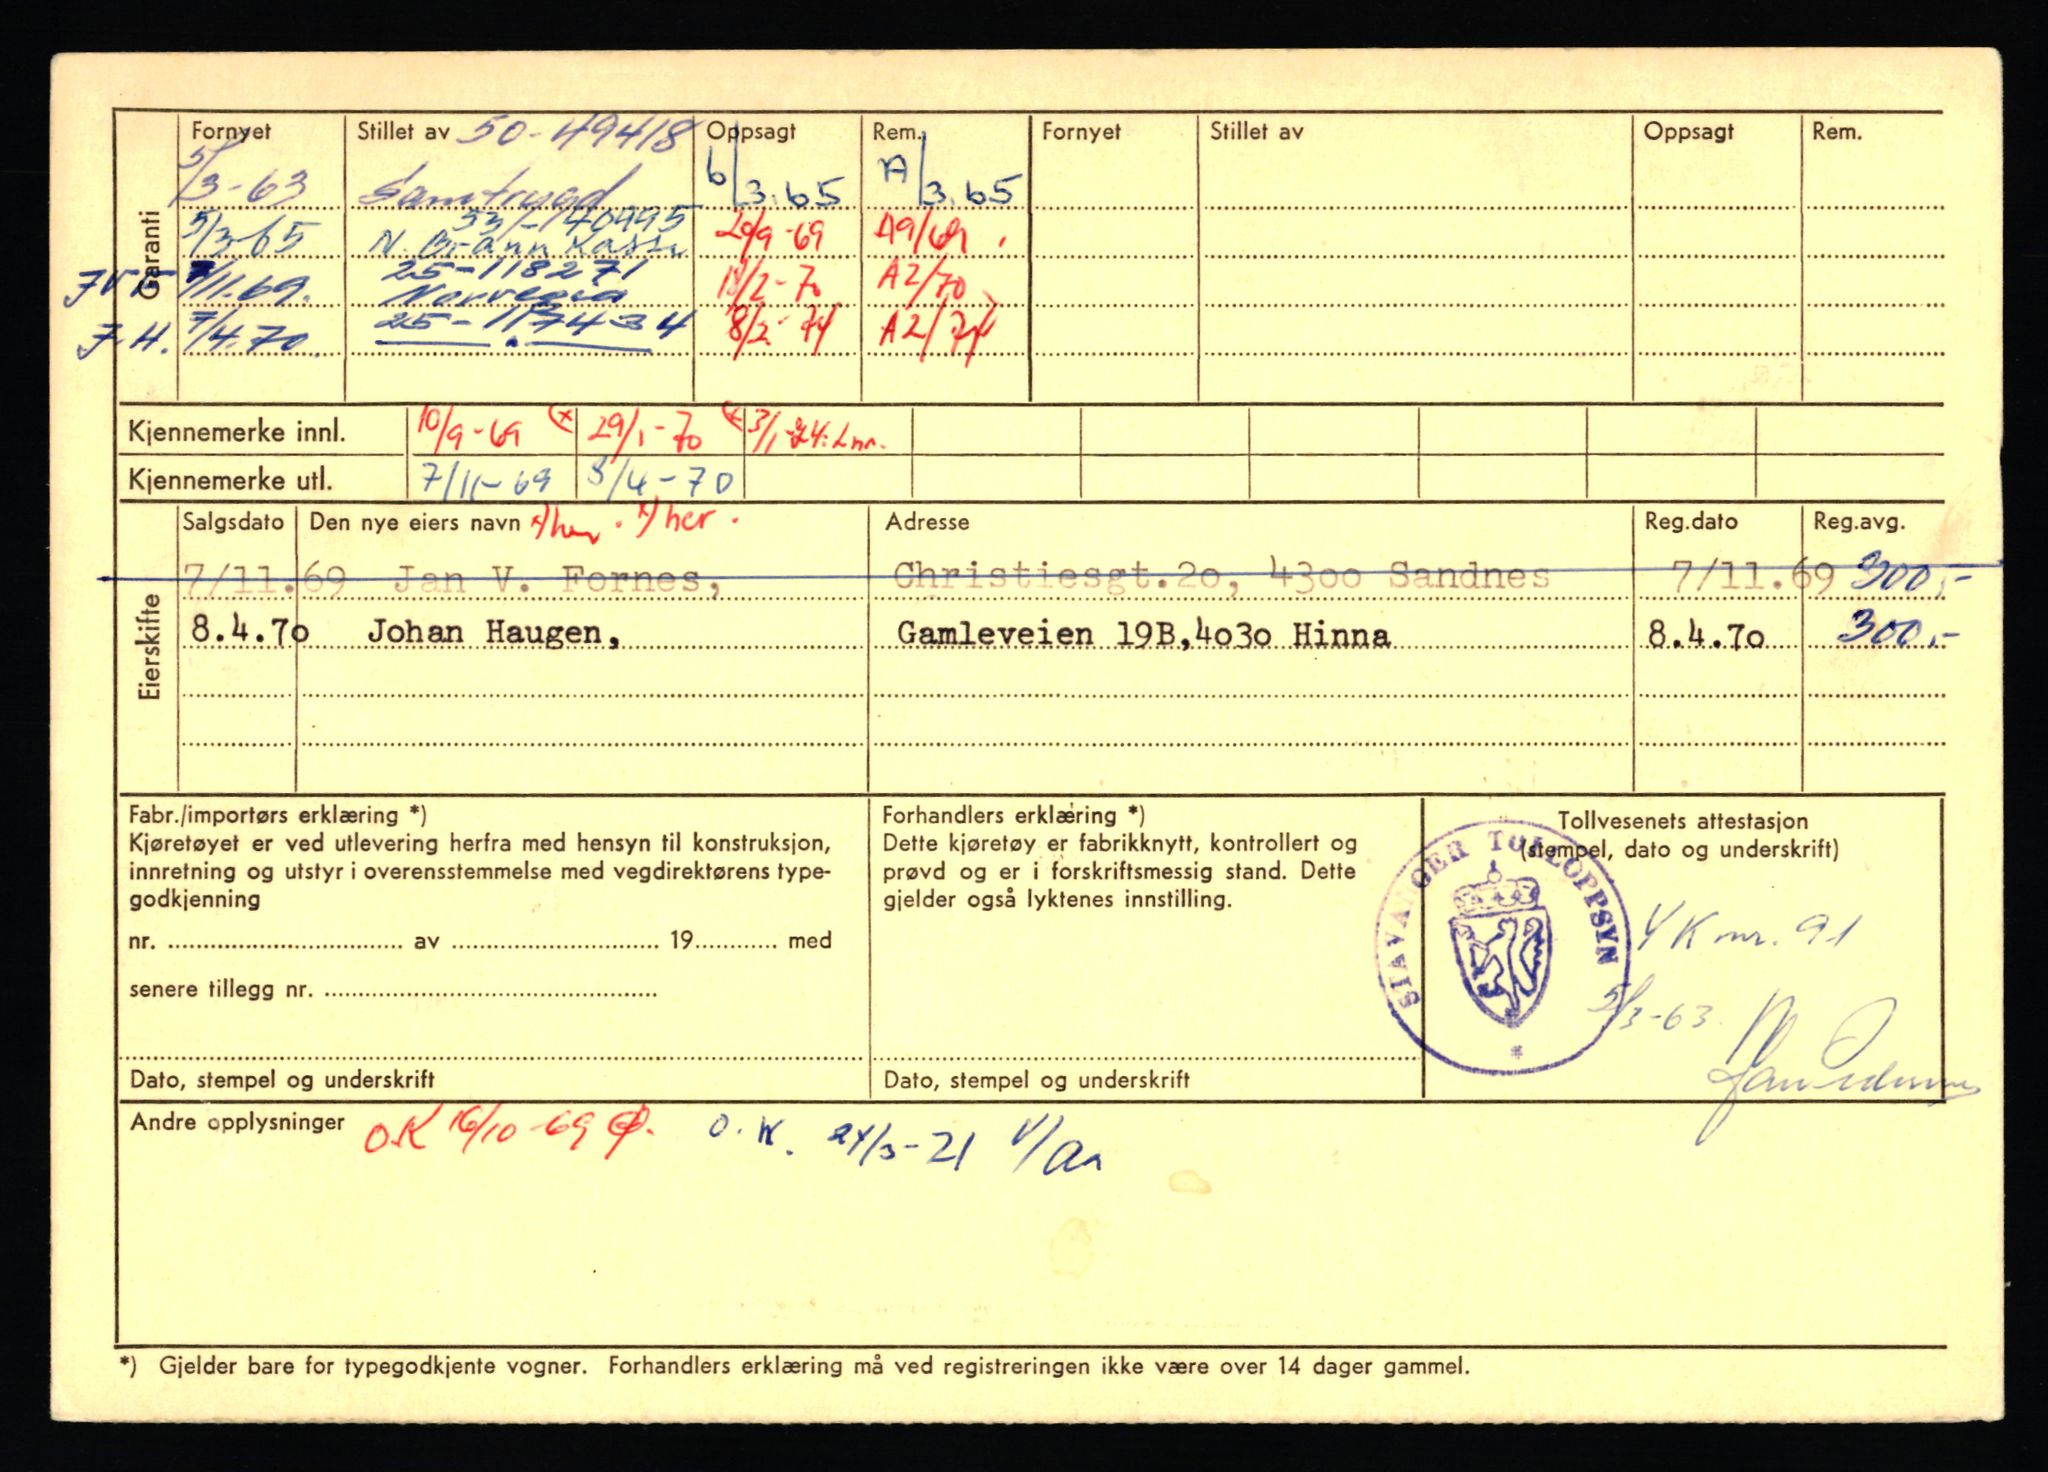 Fornyet Stillet av 50-49418 Oppsagt Rem. Fornyet Stillet av Oppsagt Rem.
Garanti
5/3-63 Samtrygd 6/3.65 A/3.65
53/-40995
5/3-65 N. Brannkasse 20/9-69 A9/69.
25-118271
7/11.69. Norvegia 18/2-70 A2/70
J.H. 7/4.70. 25-117434 8/2-74 A2/74
Kjennemerke innl. 10/9-69 (x 29/1-70 (x 3/1-74.
Kjennemerke utl. 7/11-69 8/4-70
Eierskifte
Salgsdato Den nye eiers navn x)her. x)her. Adresse Reg.dato Reg.avg.
7/11.69 Jan V. Fornes, Christiesgt.20, 4300 Sandnes 7/11.69 300,-
8.4.70 Johan Haugen, Gamleveien 19B,4030 Hinna 8.4.70 300,-
Fabr./importørs erklæring *)
Kjøretøyet er ved utlevering herfra med hensyn til konstruksjon,
innretning og utstyr i overensstemmelse med vegdirektørens type-
godkjenning
nr. av 19 med
senere tillegg nr.
Dato, stempel og underskrift
Forhandlers erklæring *)
Dette kjøretøy er fabrikknytt, kontrollert og
prøvd og er i forskriftsmessig stand. Dette
gjelder også lyktenes innstilling.
Dato, stempel og underskrift
Tollvesenets attestasjon
(stempel, dato og underskrift)
STAVANGER TOLLOPPSYN
nr. 91
5/3-63.
Andre opplysninger O.K 16/10-69 O.K. 24/3-71
*) Gjelder bare for typegodkjente vogner. Forhandlers erklæring må ved registreringen ikke være over 14 dager gammel.